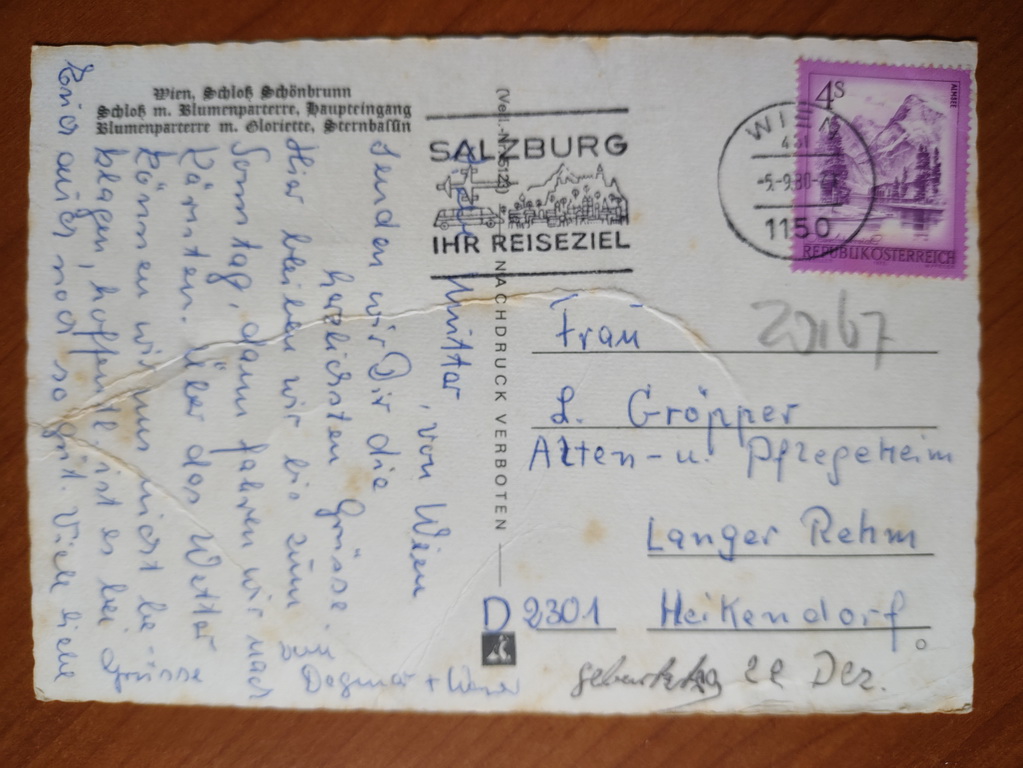 Wien, Schloß Schönbrunn
Schloß m. Blumenparterre, Haupteingang
Blumenparterre m. Gloriette, Sternbassin
SALZBURG
IHR REISEZIEL
WIEN
-5.-9.80-
1150
4S
ALMSEE
REPUBLIK ÖSTERREICH
NACHDRUCK VERBOTEN
Mutter, von Wien
senden wir Dir die
herzlichsten Grüsse.
Hier bleiben wir bis zum
Sonntag, dann fahren wir nach
Kärnten. Über das Wetter
können wir uns nicht be
klagen, hoffentl. ist es bei
Euch auch noch so gut. Viele liebe
Grüsse
Dagmar +
Frau
L. Gröpper
Alten- u. Pflegeheim
Langer Rehm
D 2301 Heikendorf
20167
geburtstag 22 Dez.